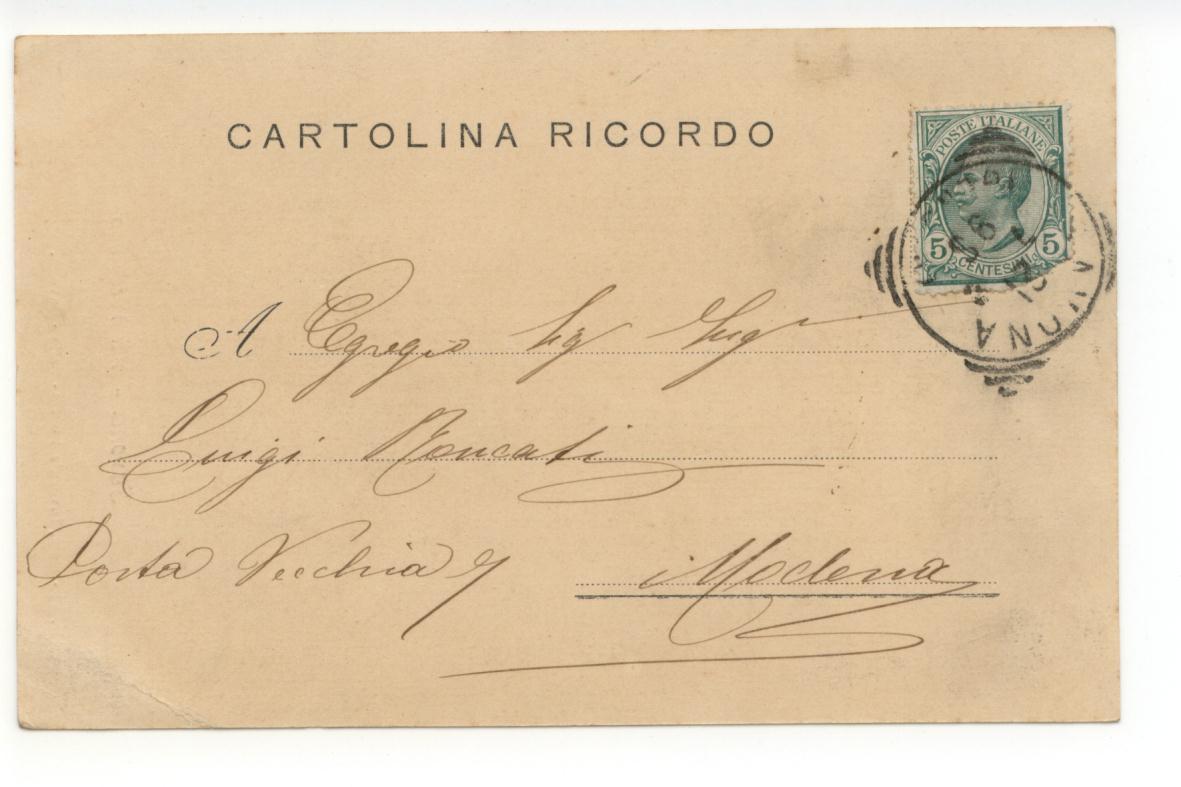 CARTOLINA RICORDO
POSTE ITALIANE
5 CENTESIMI 5
A Egregio Sig Luig
Luigi Roncati
Posta Vecchia 7
Modena